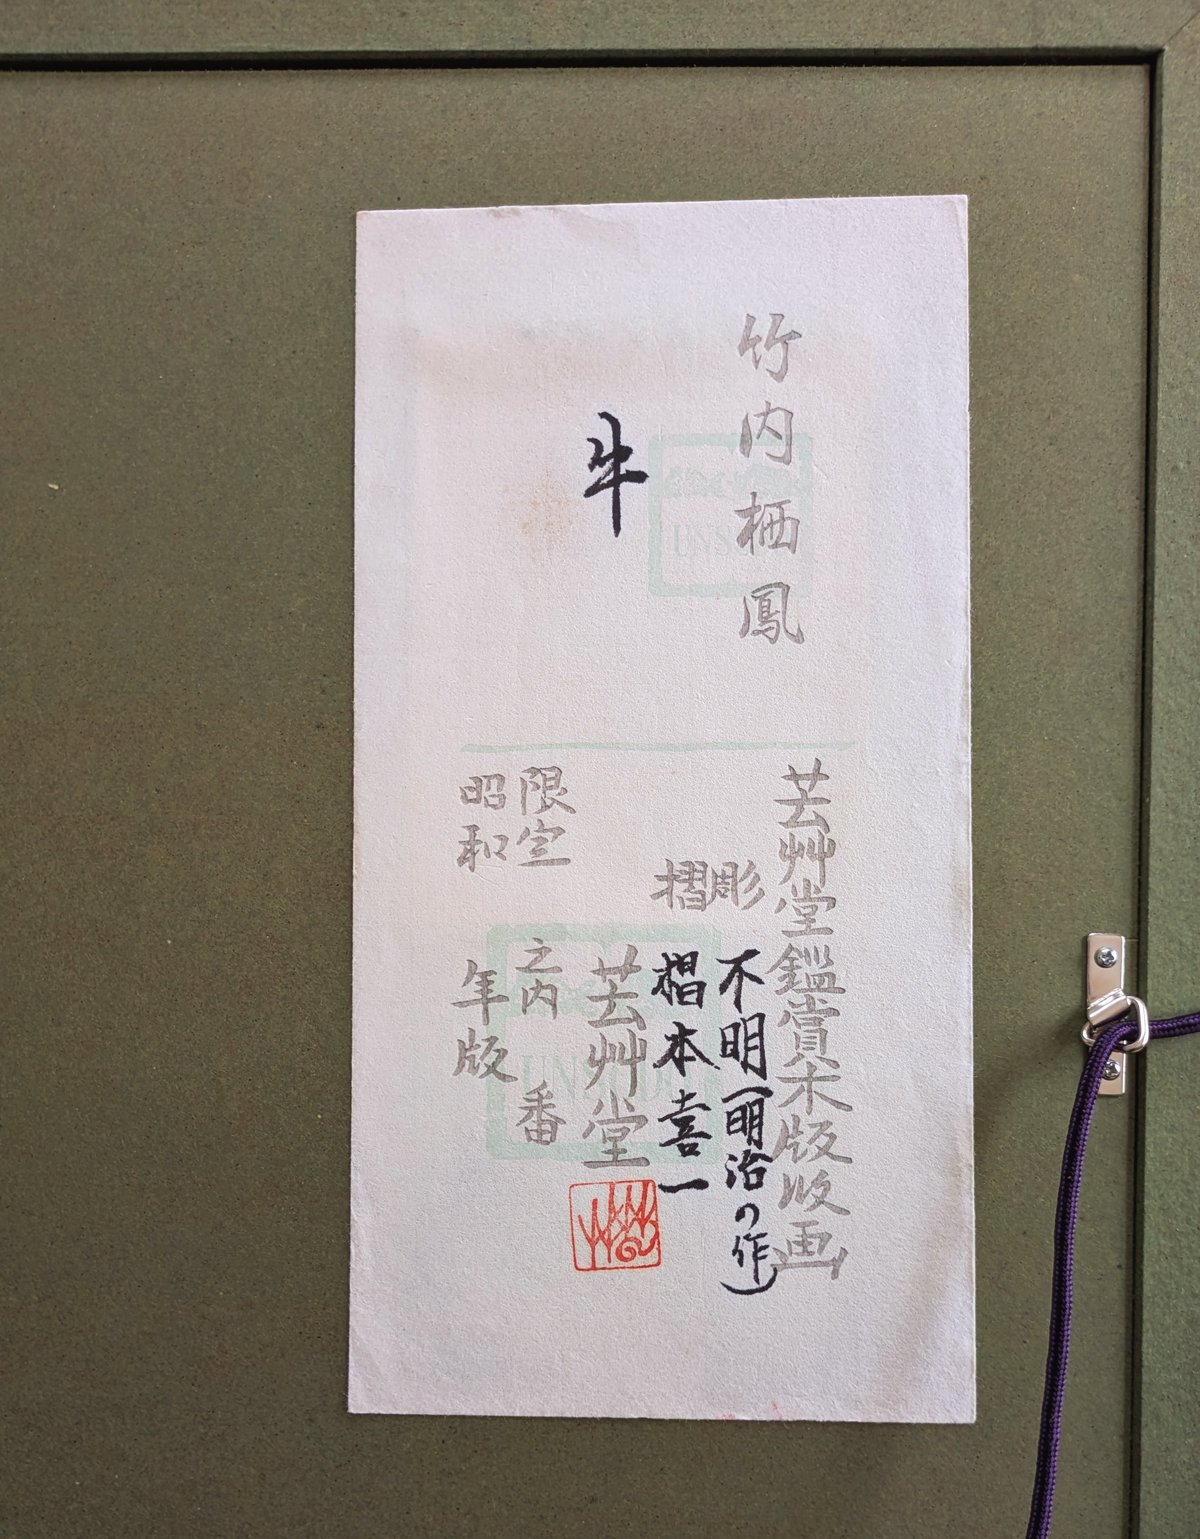 竹内栖鳳
牛
芸艸堂鑑賞木版版画
彫 不明(明治の作)
摺 椙本喜一
芸艸堂
限定 之内 番
昭和 年版